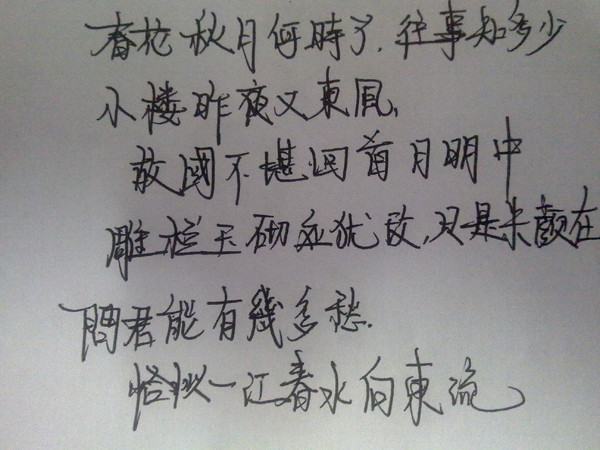 春花秋月何時了,往事知多少
小楼昨夜又東風,
故國不堪回首月明中
雕栏玉砌应犹改,只是朱顏在
問君能有幾多愁.
恰似一江春水向東流